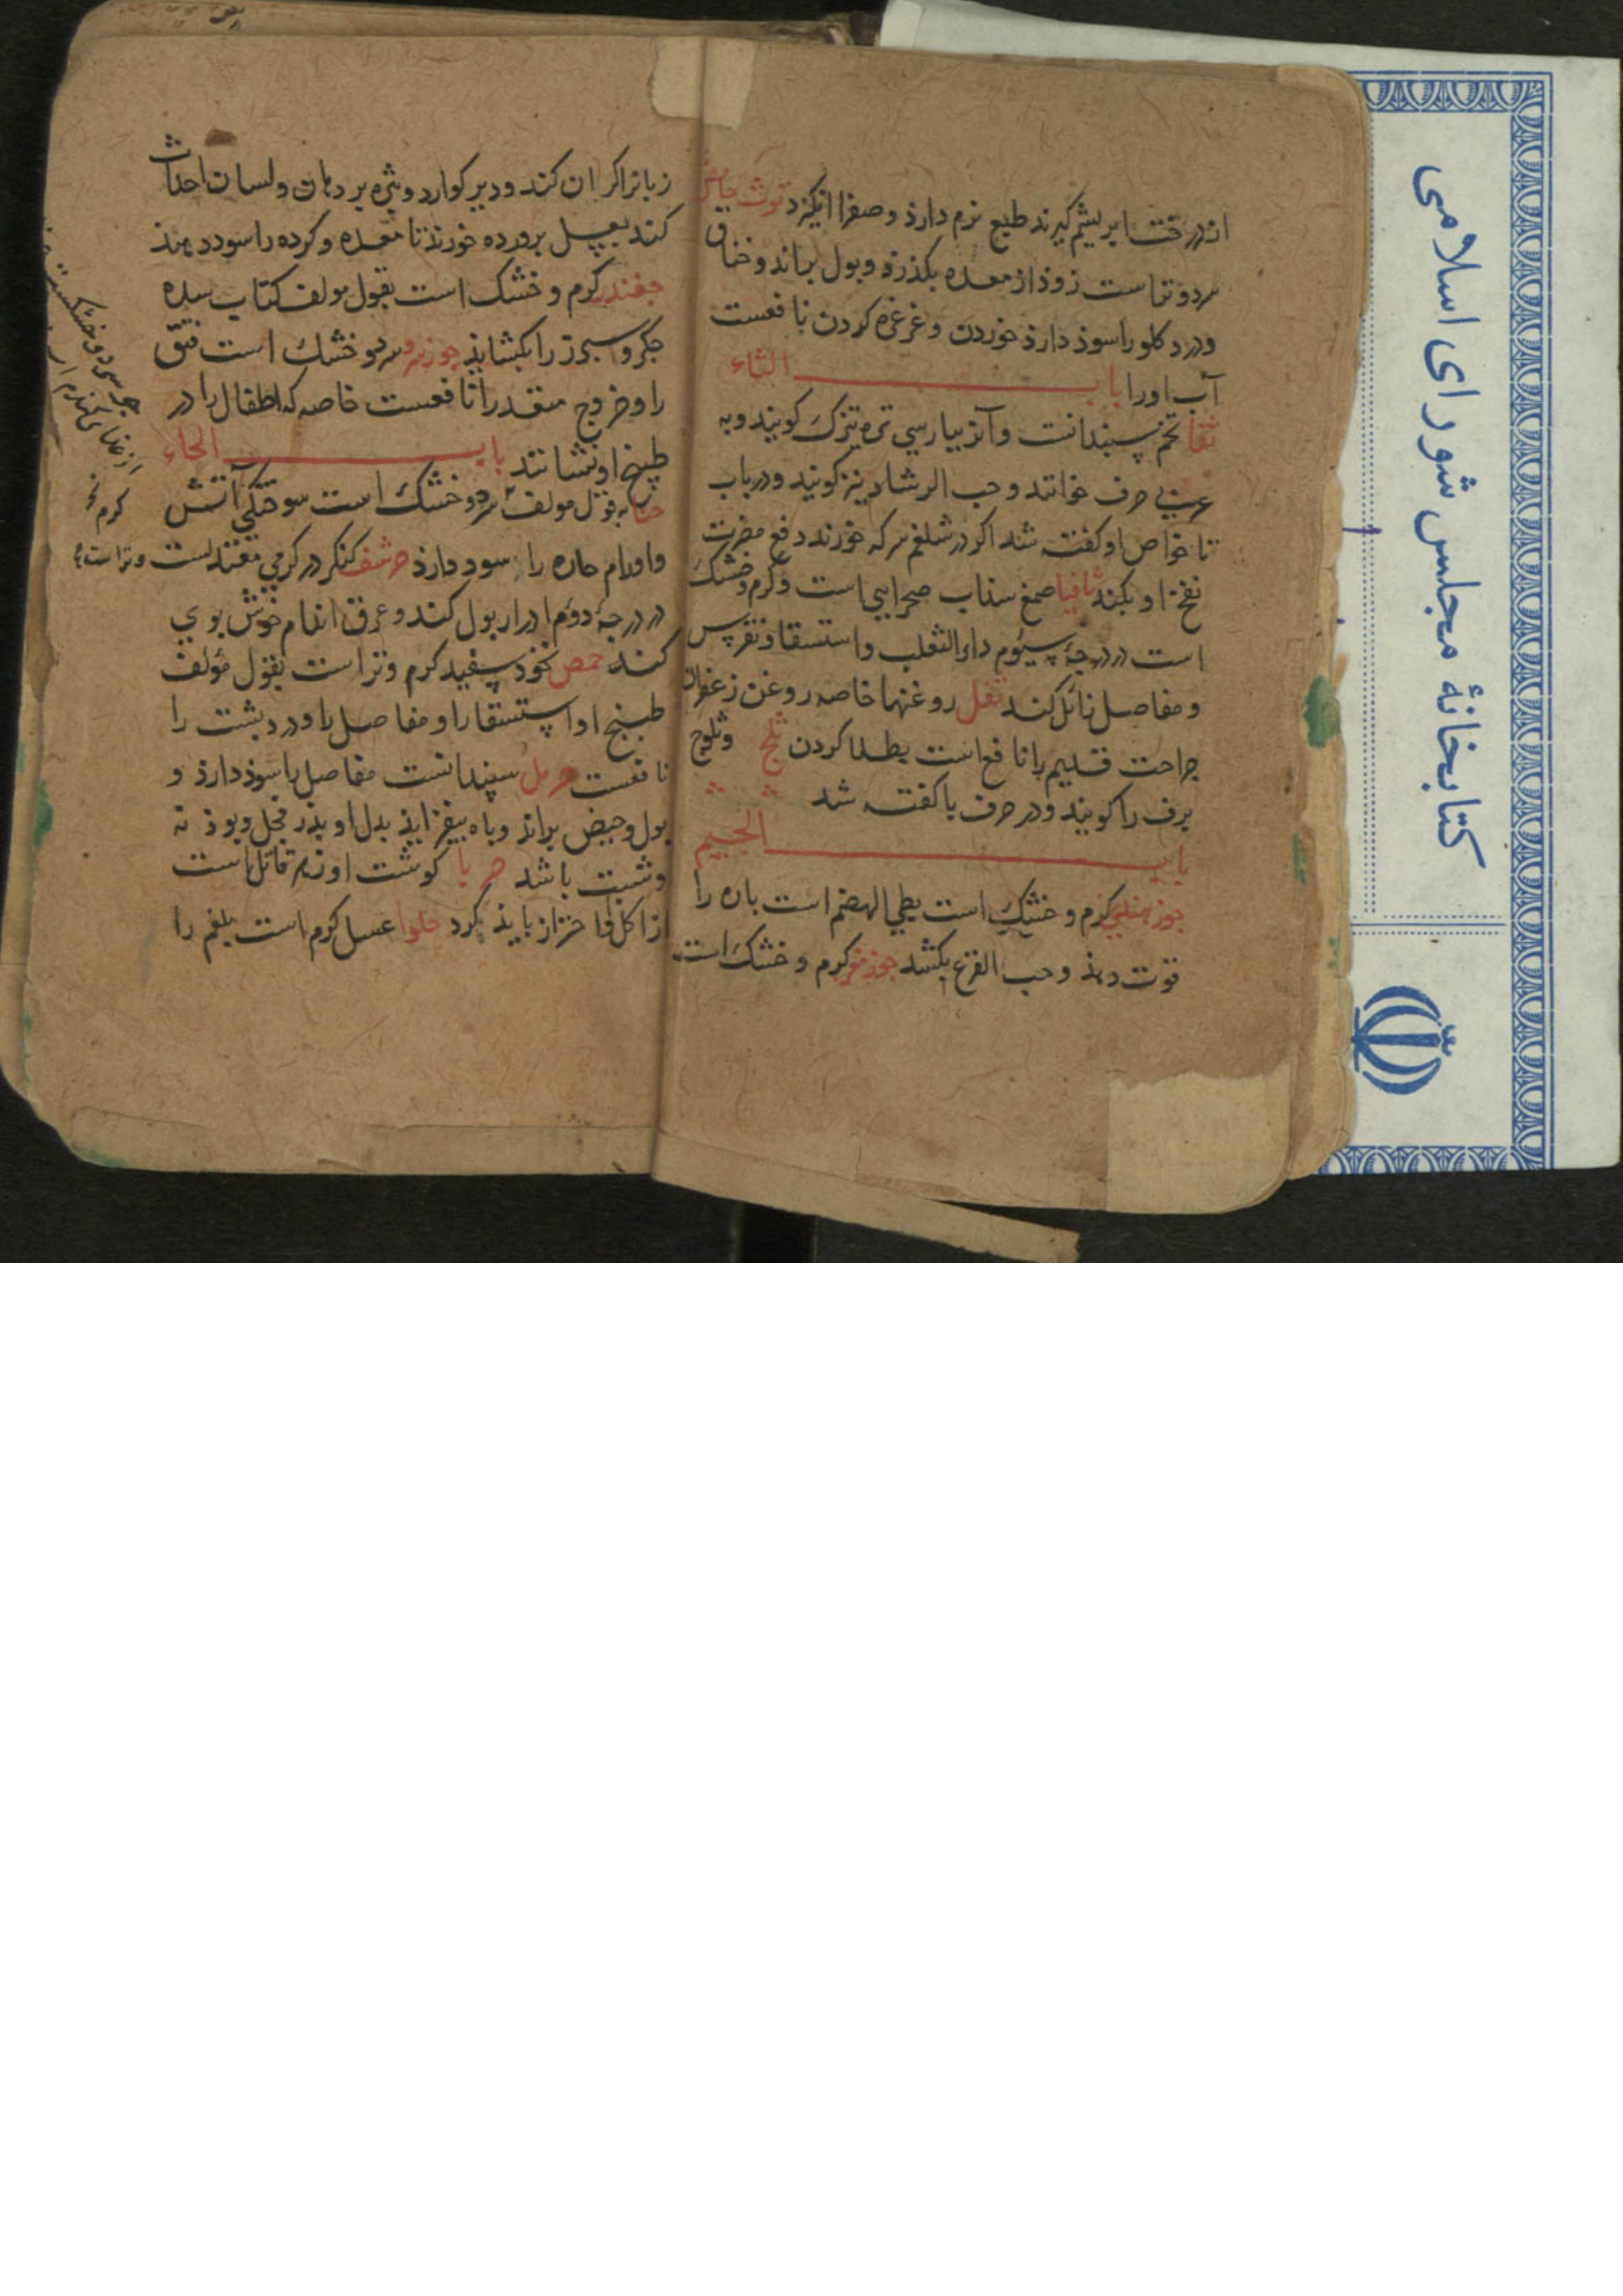 اندرخت ابریشم گیرند طبع نرم دارذ و صفرا انکیزد توث حامض
سردوتراست زوذ از معده بکذرذ وبول براند وخناق
ودرد کلو را سوذ دارذ خوردن وغرغره کردن نافعست
آب اورا باب الثاء
ثفا تخم سپندانست وآنرا بپارسی تره تیزک کویند وبه
عربی حرف خوانند وحب الرشاد نیز کویند ودرباب
تا خواص او کفته شد اکر در شلغم سرکه خورند دفع مضرت
نفخ او بکند ثافیا صمغ سذاب صحرایی است وکرم وخشک
است در درجهٔ سیوم داء الثعلب واستسقا ونقرس
ومفاصل زائل کند ثفل روغنها خاصه روغن زعفران
جراحت قدیم را نافع است بطلا کردن ثلج وثلوج
برف را کویند ودر حرف با کفته شد
باب الجیم
جوز هندی کرم وخشک است بطی الهضم است باه را
قوت دهذ وحب القرع بکشد جوز کرم وخشک است
زبانرا کران کند ودیر کوارد وبثره بر دهان ولسان احداث
کند بعسل پرورده خورند تا معده وکرده را سود دهذ
جغندر کرم وخشک است بقول مولف کتاب سده
جکر وسبرز را بکشایذ جوز سرو سرد وخشک است فتق
را وخروج مقعد را نافعست خاصه که اطفال را در
طبیخ او نشانند باب الحاء
حنا بقول مولف سرد وخشک است سوختکی آتش
واورام حاره را سود دارذ حرشف کنکر در کرمی معتدلست وتراست
در درجهٔ دوم ادرار بول کند وعرق اندام خوش بوی
کند حمص نخود سفید کرم وتر است بقول مؤلف
طبیخ او استسقا را ومفاصل را ودرد پشت را
نافعست حرمل سپندانست مفاصل را سوذ دارذ و
بول وحیض براند وباه بیفزایذ بدل او بذر فجل وبوذنه
وشبت باشد حربا کوشت او زهر قاتل است
از اکل او احتراز بایذ کرد حلوا عسل کرم است بلغم را
کتابخانهٔ مجلس شورای اسلامی